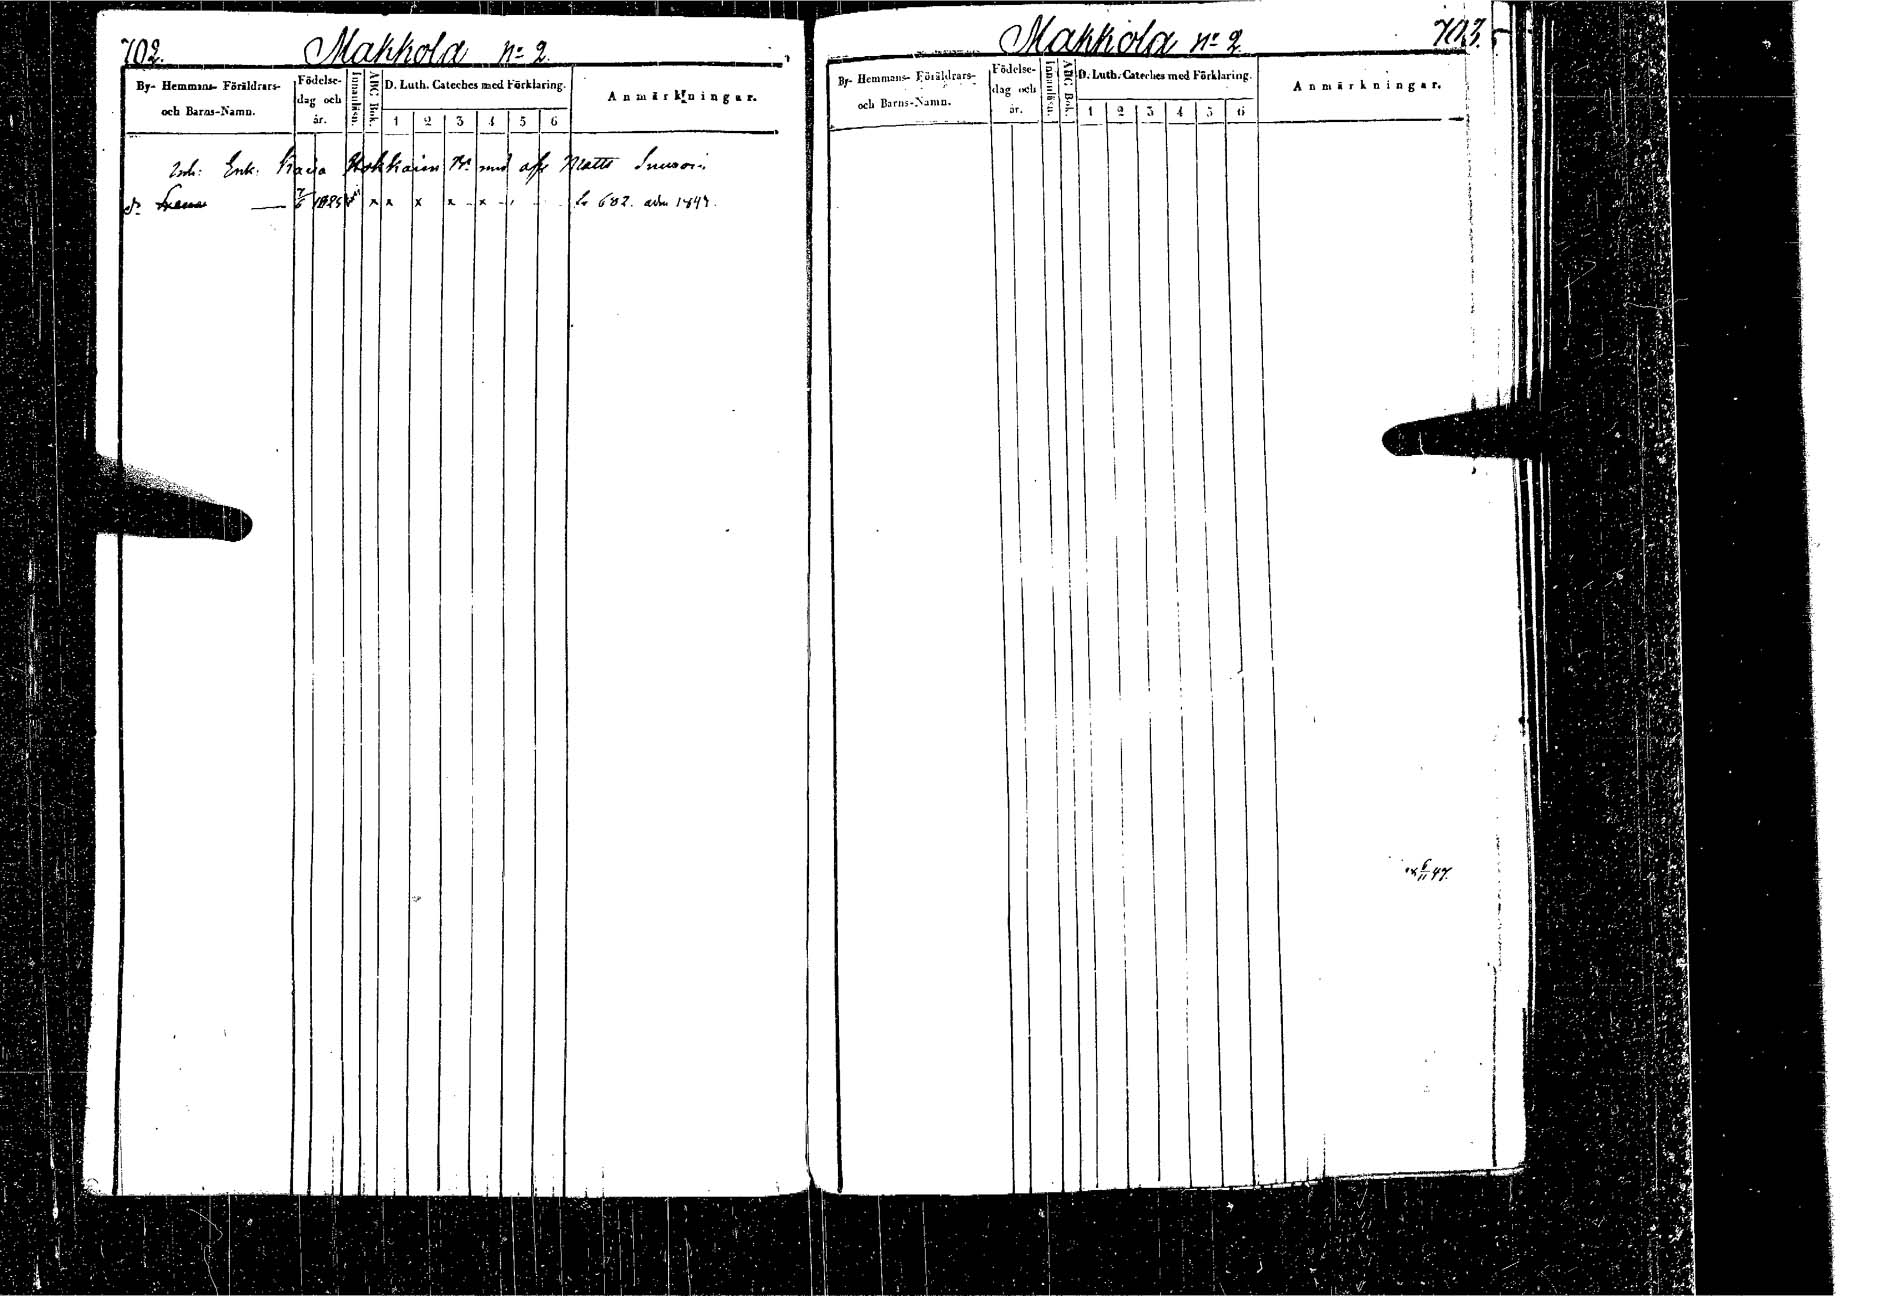 702.
Makkola No 2.
By- Hemmans- Föräldrars- och Barns-Namn.
Födelse- dag och år.
Innanläsn.
ABC Bok.
D. Luth. Cateches med Förklaring.
1 2 3 4 5 6
Anmärkningar.
Inh: Enk. Kaisa med Matts
dr 1825 x x x x x 682. 1847.
Makkola No 2.
703.
By- Hemmans- Föräldrars- och Barns-Namn.
Födelse- dag och år.
Innanläsn.
ABC Bok.
D. Luth. Cateches med Förklaring.
1 2 3 4 5 6
Anmärkningar.
6/11 47.